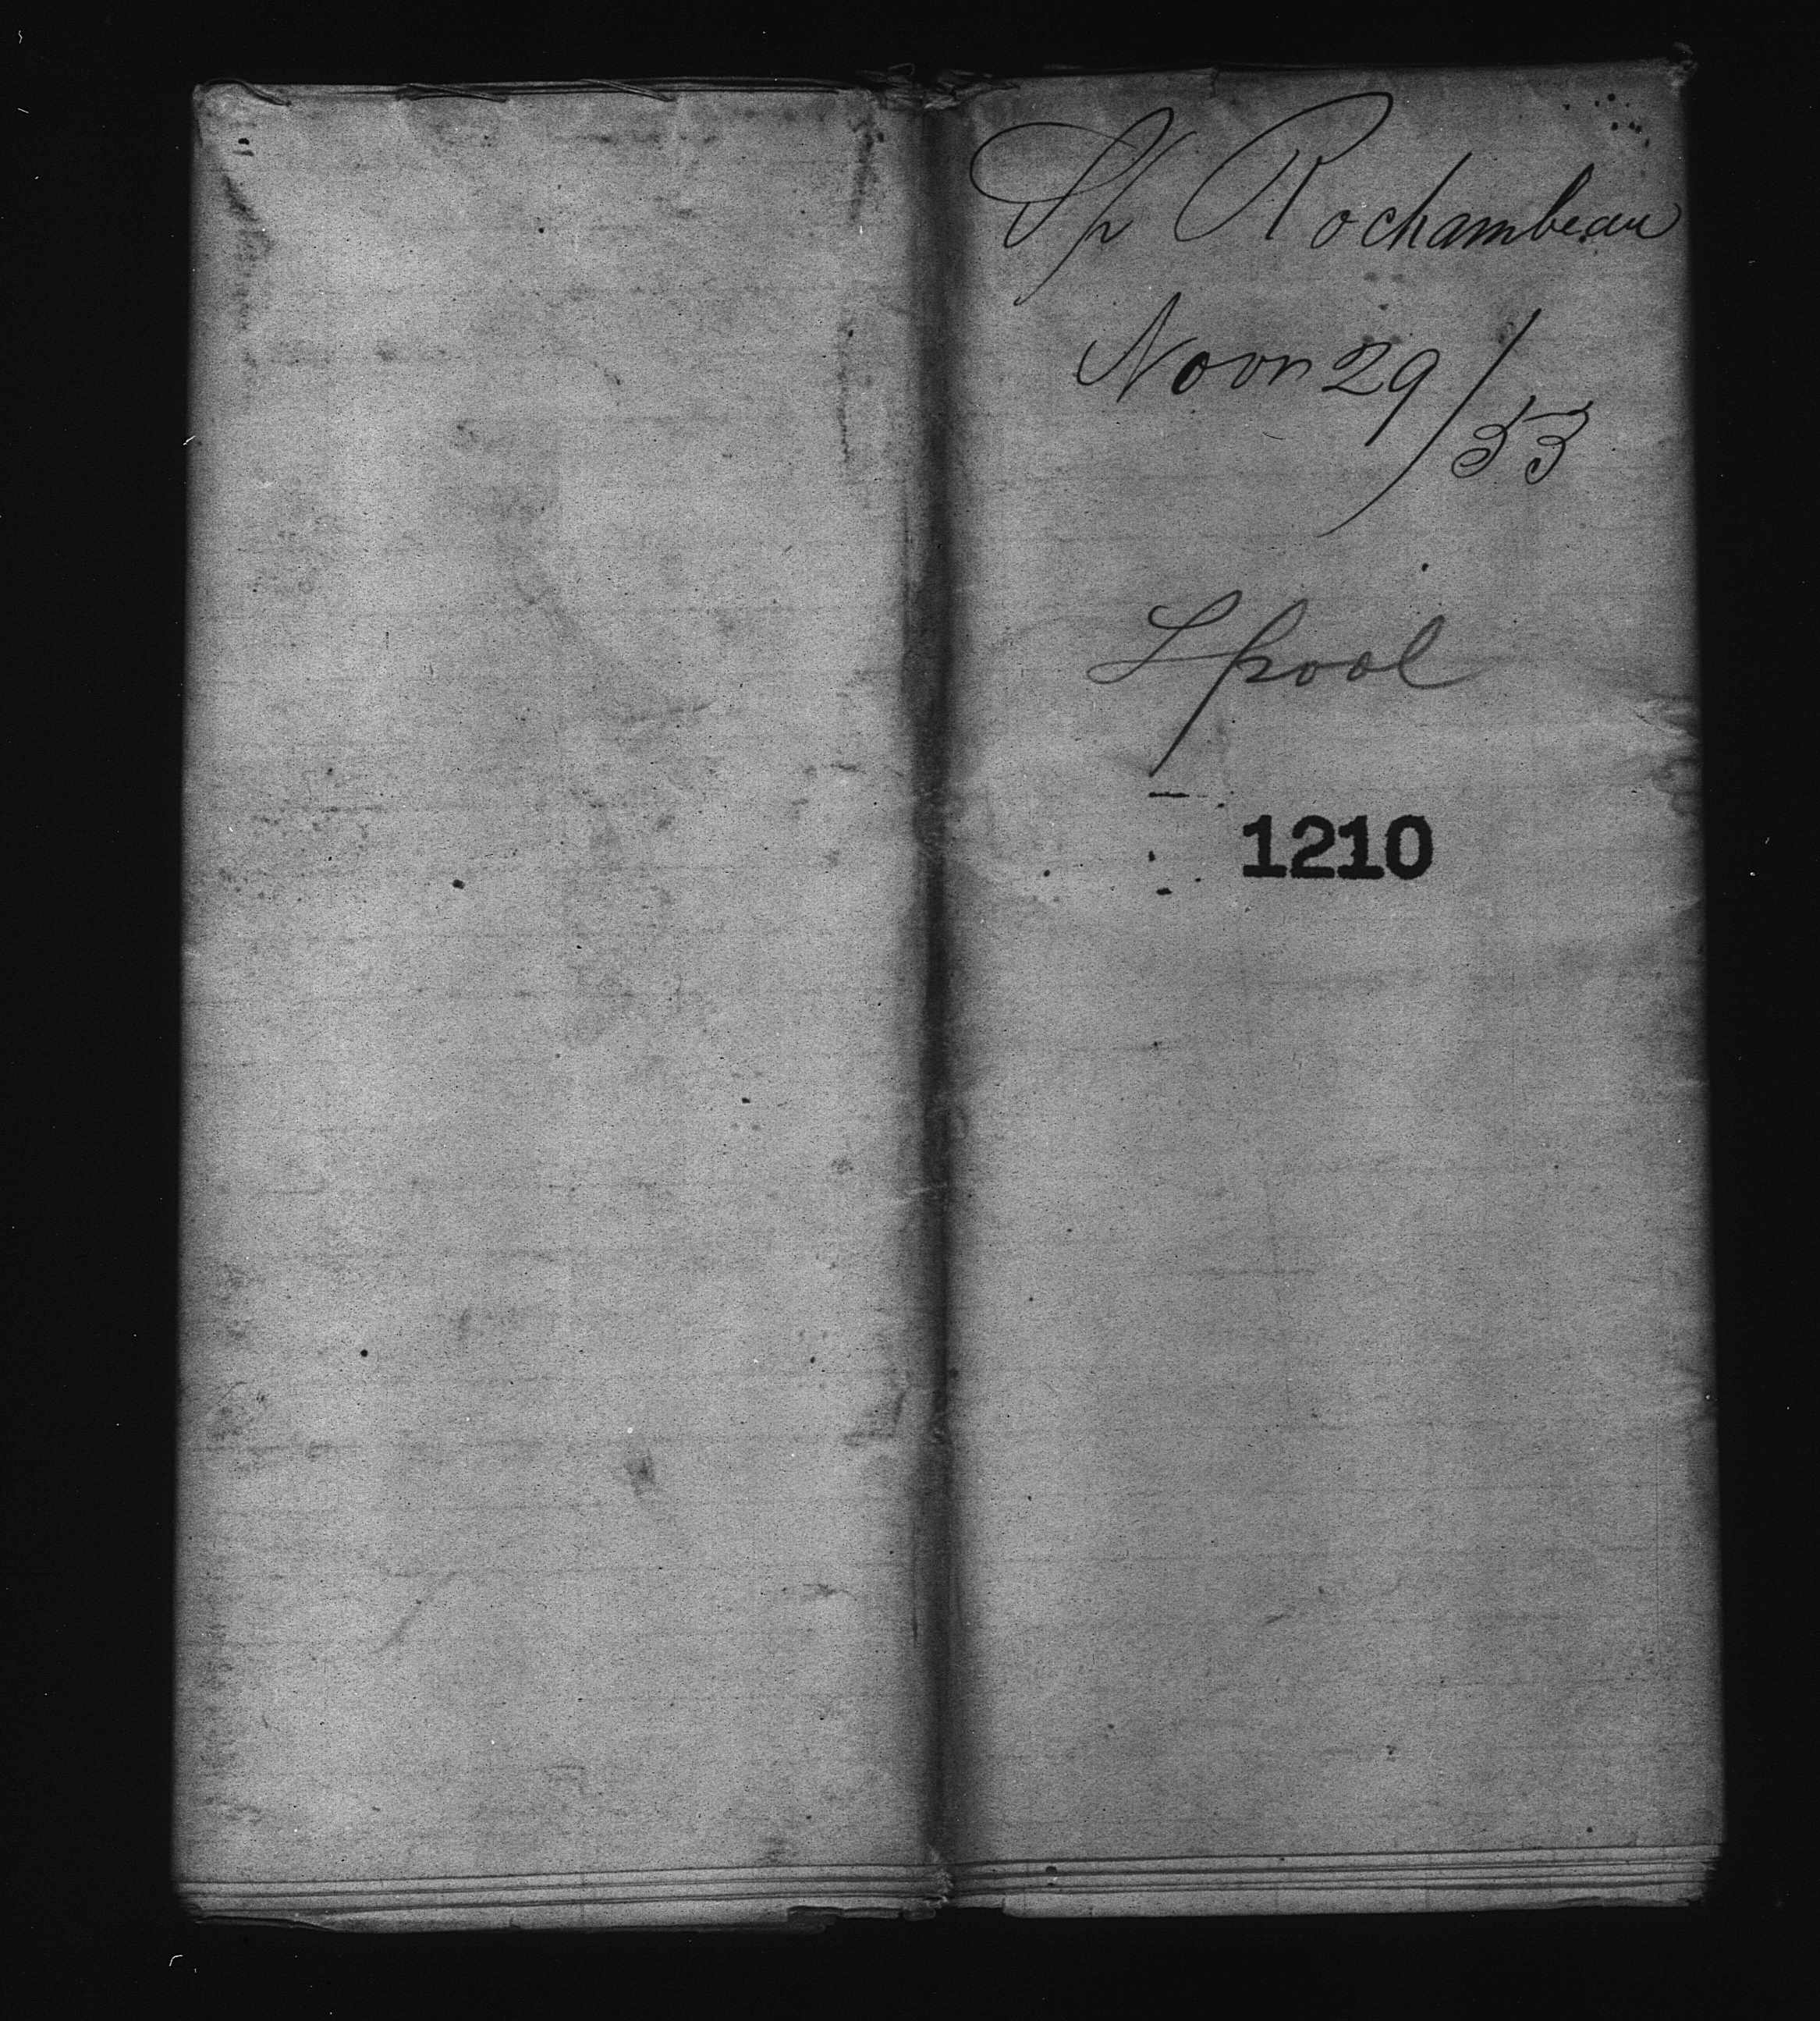 Sp Rochambeau
Novr 29/53
Lpool
1210